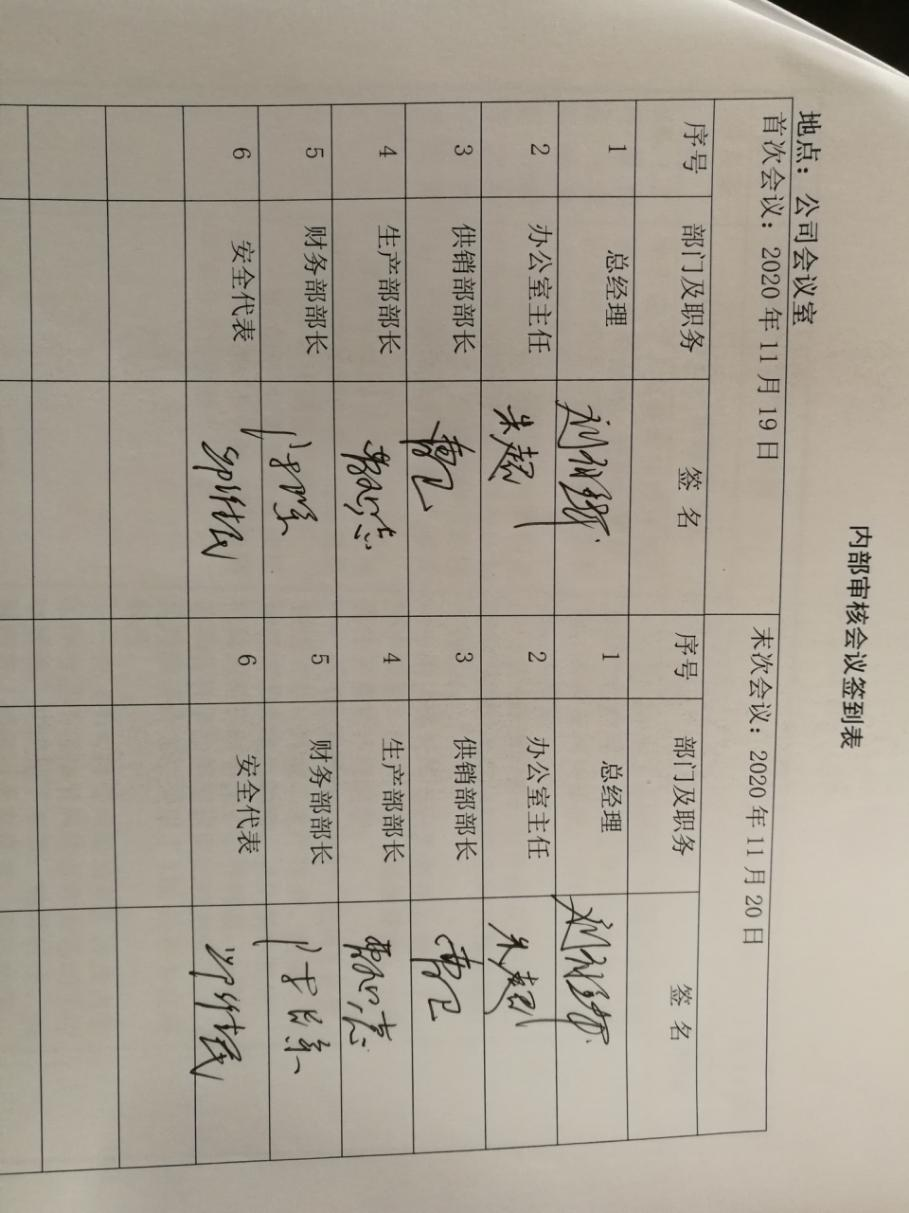 内部审核会议签到表
地点：公司会议室
首次会议：2020年11月19日 末次会议：2020年11月20日
序号 部门及职务 签 名 序号 部门及职务 签 名
1 总经理 1 总经理
2 办公室主任 朱超 2 办公室主任 朱超
3 供销部部长 曹卫 3 供销部部长 曹卫
4 生产部部长 4 生产部部长
5 财务部部长 5 财务部部长
6 安全代表 6 安全代表